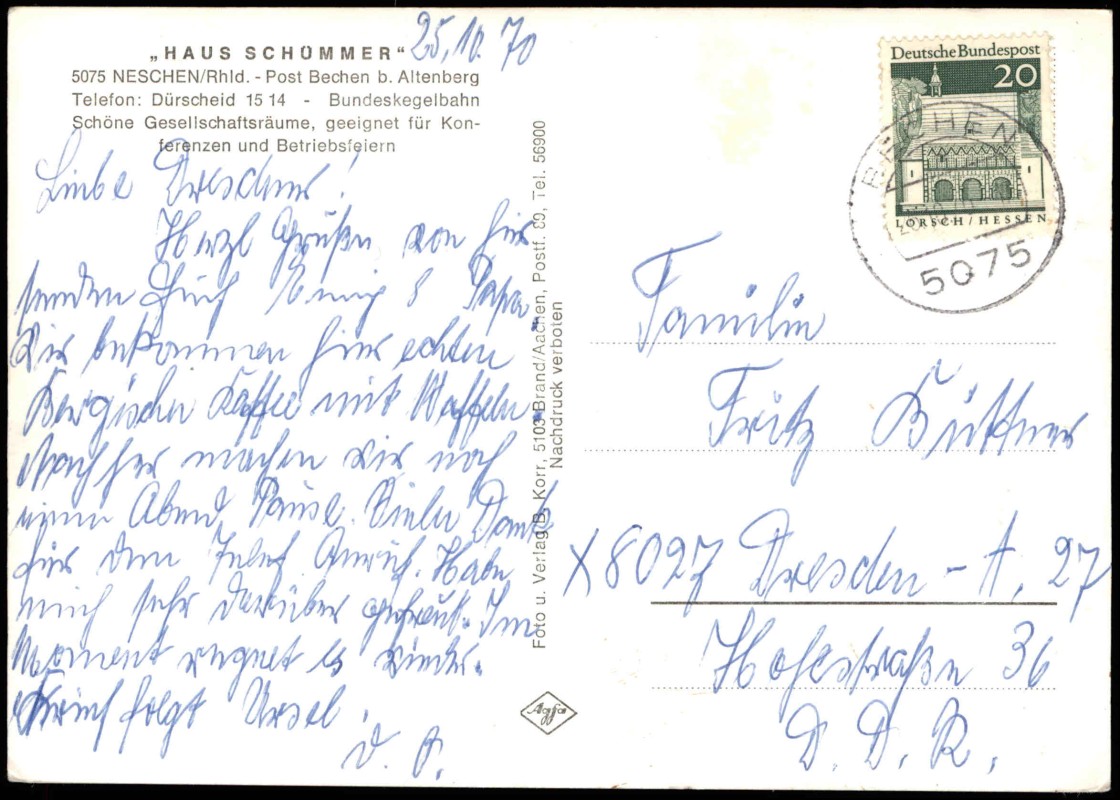 „HAUS SCHÜMMER"
25.10.70
5075 NESCHEN/Rhld. - Post Bechen b. Altenberg
Telefon: Dürscheid 15 14 - Bundeskegelbahn
Schöne Gesellschaftsräume, geeignet für Kon-
ferenzen und Betriebsfeiern
Liebe Dresdner!
Herzl Grüße von hier
senden Euch Papa.
Wir bekommen hier echten
Bergischen Kaffee mit Waffeln.
Nachher machen wir noch
einen Abend Pause. Vielen Dank
für den Telef. Anruf. Habe
mich sehr darüber gefreut. Im
Moment regnet es wieder.
Brief folgt Ursel.
Foto u. Verlag B. Korr, 5103 Brand/Aachen, Postf. 69, Tel. 56900
Nachdruck verboten
Agfa
Deutsche Bundespost
20
LORSCH/HESSEN
BECHEN
5075
Familie
Fritz Büttner
X8027 Dresden - A. 27
Hohestraße 36
D. D. R.